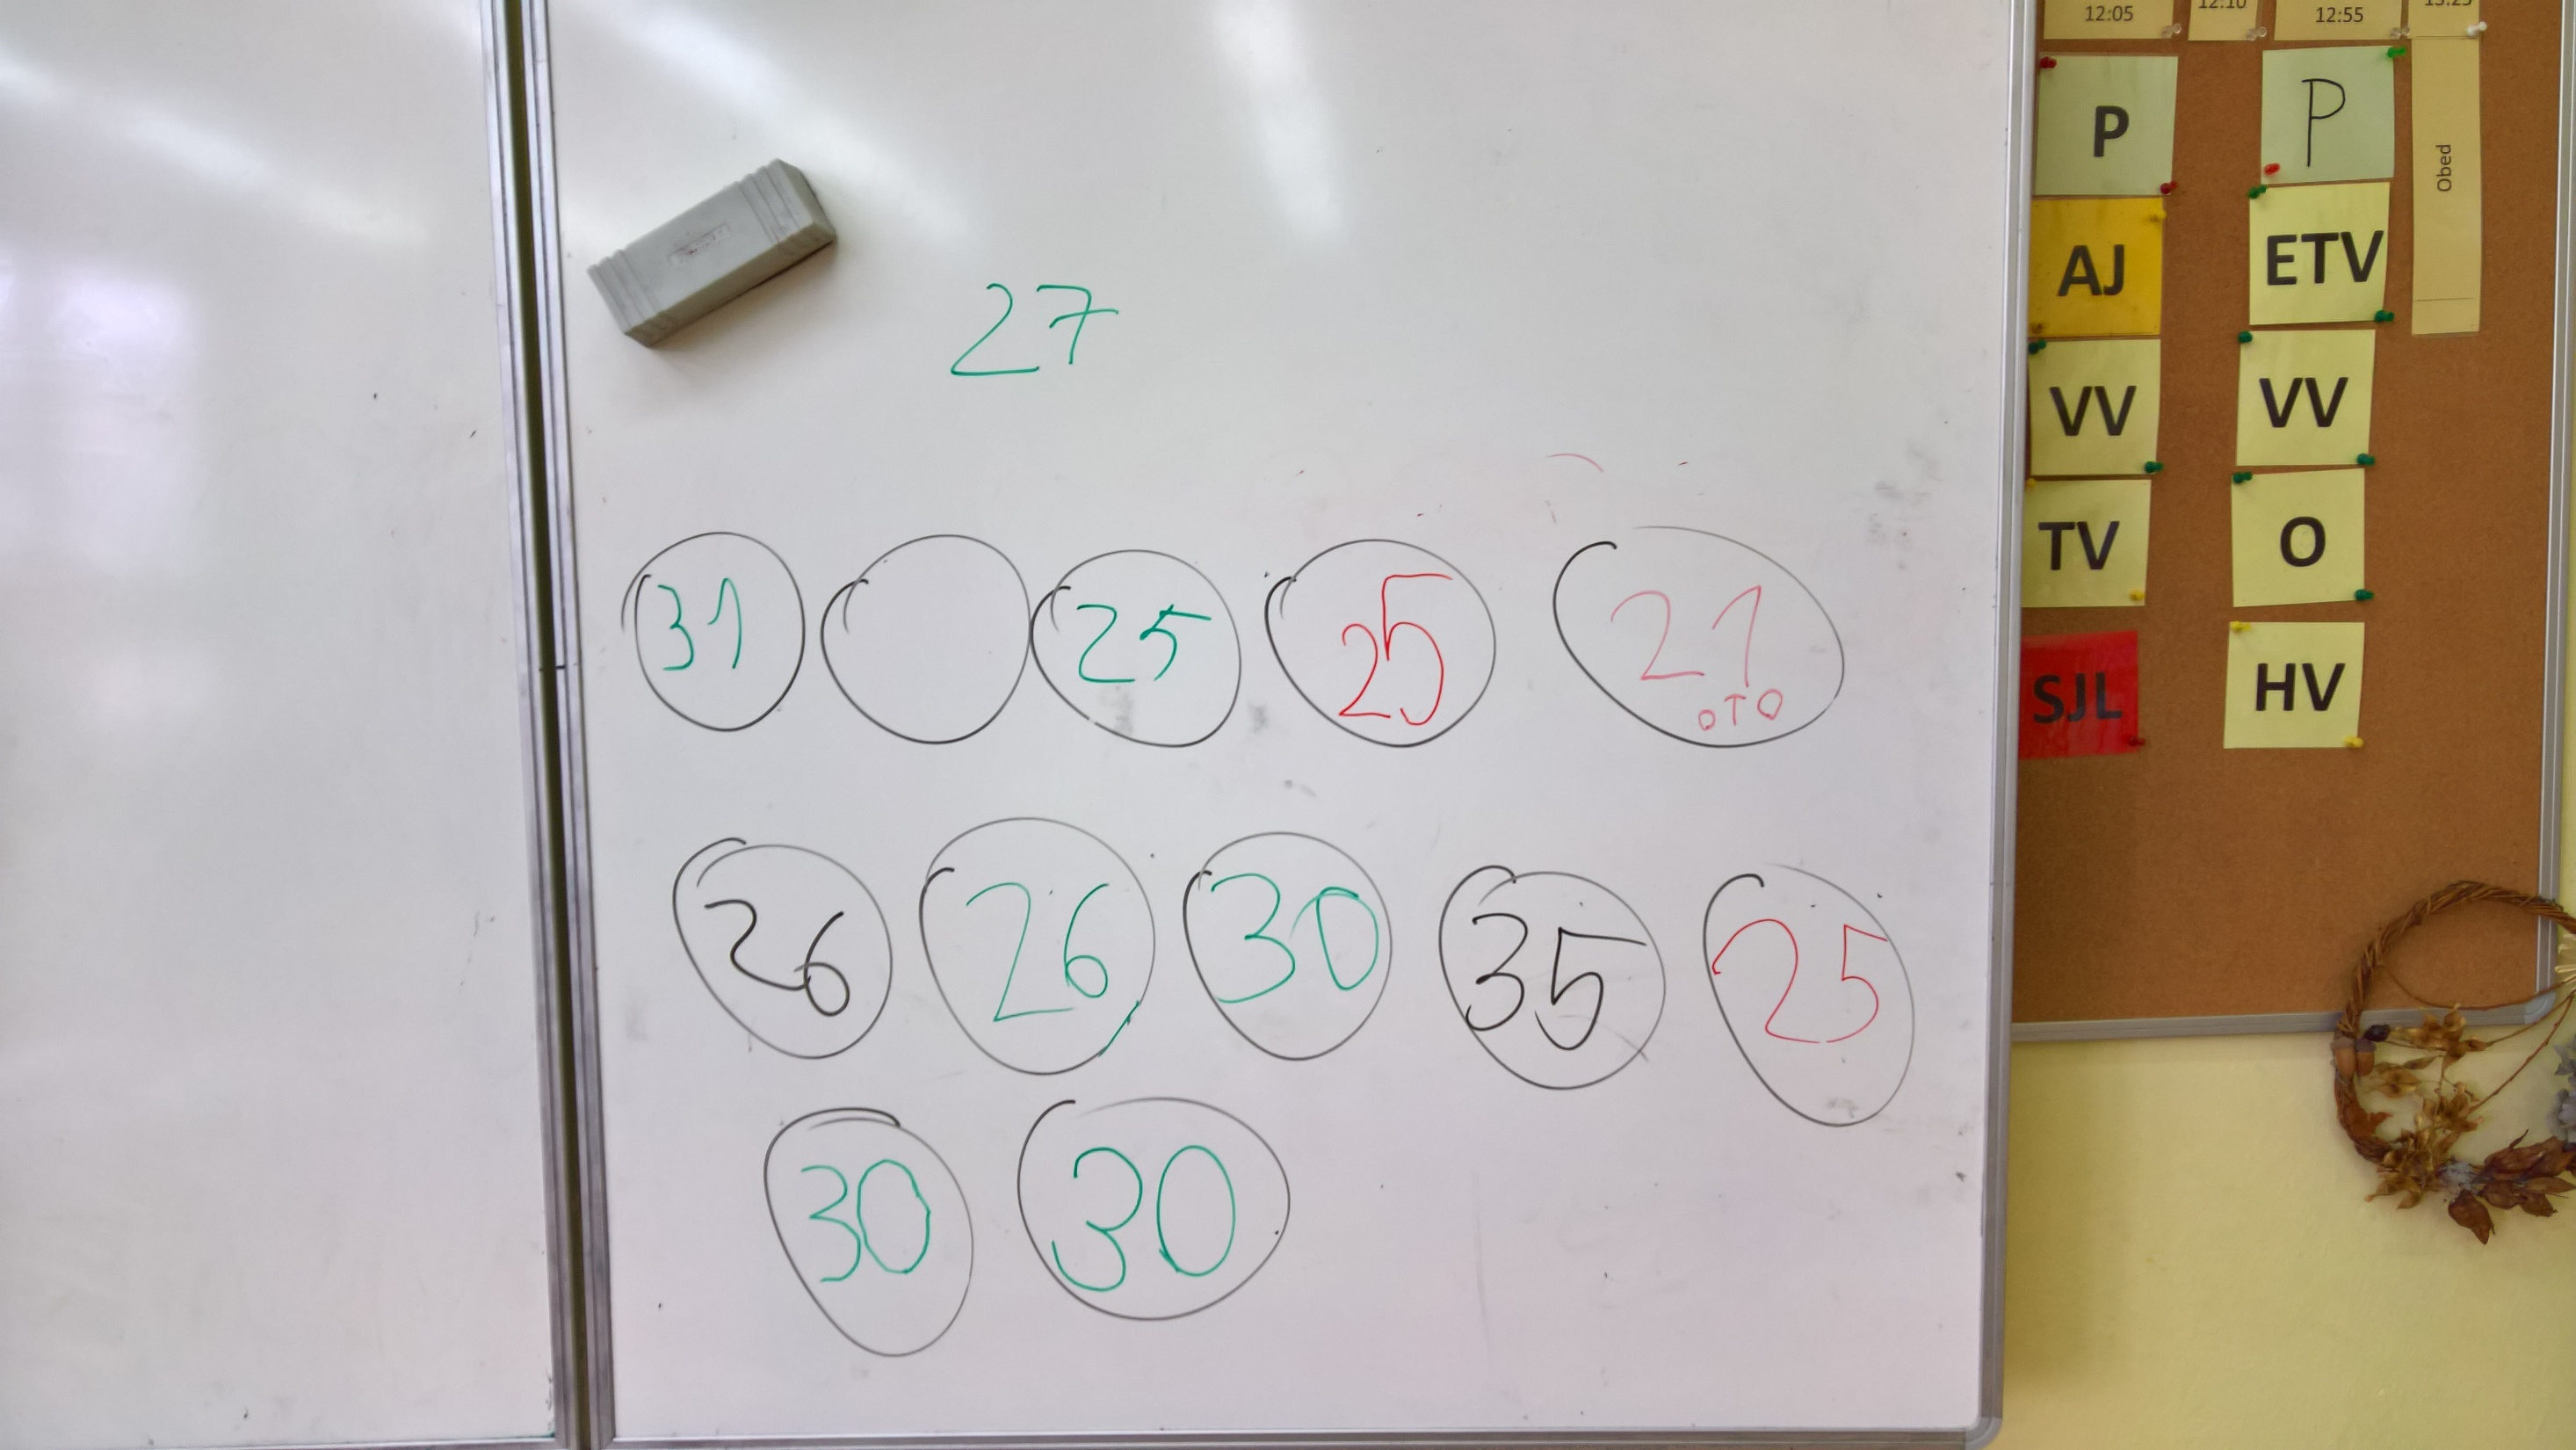 27
31 25 25 21
OTO
26 26 30 35 25
30 30
12:05 12:10 12:55 13:25
P P
Obed
AJ ETV
VV VV
TV O
SJL HV